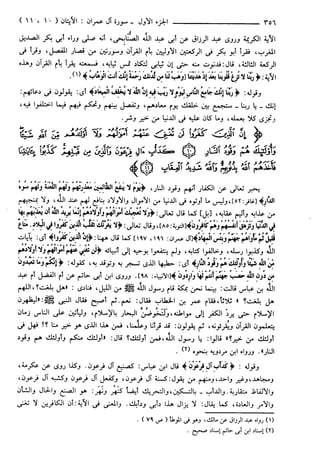 ٣٥٦ الجزء الأول - سورة آل عمران : الآيتان (١٠ ، ١١)
الآية الكريمة وروى عبد الرزاق عن أبي عبد الله الصنابحي، أنه صلى وراء أبي بكر الصديق
المغرب، فقرأ أبو بكر في الركعتين الأوليين بأم القرآن وسورتين من قصار المفصل، وقرأ في
الركعة الثالثة، قال: فدنوت منه حتى إن ثيابي لتكاد تمس ثيابه، فسمعته يقرأ بأم القرآن وهذه
الآية: ﴿رَبَّنَا لَا تُزِغْ قُلُوبَنَا بَعْدَ إِذْ هَدَيْتَنَا وَهَبْ لَنَا مِن لَّدُنكَ رَحْمَةً إِنَّكَ أَنتَ الْوَهَّابُ﴾ (١).
وقوله: ﴿رَبَّنَا إِنَّكَ جَامِعُ النَّاسِ لِيَوْمٍ لَّا رَيْبَ فِيهِ إِنَّ اللَّهَ لَا يُخْلِفُ الْمِيعَادَ﴾ أي: يقولون في دعائهم:
إنك - يا ربنا - ستجمع بين خلقك يوم معادهم، وتفصل بينهم وتحكم فيهم فيما اختلفوا فيه،
وتجزي كلا بعمله، وما كان عليه في الدنيا من خير وشر.
﴿إِنَّ الَّذِينَ كَفَرُوا لَن تُغْنِيَ عَنْهُمْ أَمْوَالُهُمْ وَلَا أَوْلَادُهُم مِّنَ اللَّهِ شَيْئًا
وَأُولَٰئِكَ هُمْ وَقُودُ النَّارِ ۝ كَدَأْبِ آلِ فِرْعَوْنَ وَالَّذِينَ مِن قَبْلِهِمْ كَذَّبُوا بِآيَاتِنَا
فَأَخَذَهُمُ اللَّهُ بِذُنُوبِهِمْ وَاللَّهُ شَدِيدُ الْعِقَابِ ۝﴾
يخبر تعالى عن الكفار أنهم وقود النار، ﴿يَوْمَ لَا يَنفَعُ الظَّالِمِينَ مَعْذِرَتُهُمْ وَلَهُمُ اللَّعْنَةُ وَلَهُمْ سُوءُ
الدَّارِ﴾ [غافر: ٥٢]، وليس ما أوتوه في الدنيا من الأموال والأولاد بنافع لهم عند الله، ولا بمنجيهم
من عذابه وأليم عقابه، [بل] كما قال تعالى: ﴿وَلَا تُعْجِبْكَ أَمْوَالُهُمْ وَأَوْلَادُهُمْ إِنَّمَا يُرِيدُ اللَّهُ أَن يُعَذِّبَهُم بِهَا
فِي الدُّنْيَا وَتَزْهَقَ أَنفُسُهُمْ وَهُمْ كَافِرُونَ﴾ [التوبة: ٨٥]، وقال تعالى: ﴿لَا يَغُرَّنَّكَ تَقَلُّبُ الَّذِينَ كَفَرُوا فِي الْبِلَادِ ۝ مَتَاعٌ
قَلِيلٌ ثُمَّ مَأْوَاهُمْ جَهَنَّمُ وَبِئْسَ الْمِهَادُ﴾ [آل عمران: ١٩٦، ١٩٧] كما قال ههنا: ﴿إِنَّ الَّذِينَ كَفَرُوا﴾ أي: بآيات
الله وكذبوا رسله، وخالفوا كتابه، ولم ينتفعوا بوحيه إلى أنبيائه ﴿لَن تُغْنِيَ عَنْهُمْ أَمْوَالُهُمْ وَلَا أَوْلَادُهُم
مِّنَ اللَّهِ شَيْئًا وَأُولَٰئِكَ هُمْ وَقُودُ النَّارِ﴾ أي: حطبها الذي تسجر به وتوقد به، كقوله: ﴿إِنَّكُمْ وَمَا تَعْبُدُونَ
مِن دُونِ اللَّهِ حَصَبُ جَهَنَّمَ أَنتُمْ لَهَا وَارِدُونَ﴾ [الأنبياء: ٩٨]. وروى ابن أبي حاتم عن أم الفضل أم عبد
الله بن عباس قالت: بينما نحن بمكة قام رسول الله ﷺ من الليل، فنادى: «هل بلغت؟، اللهم
هل بلغت؟» ثلاثا، فقام عمر بن الخطاب فقال: نعم. ثم أصبح فقال النبي ﷺ: «ليظهرن
الإسلام حتى يرد الكفر إلى مواطنه، ولتخوضن البحار بالإسلام، وليأتين على الناس زمان
يتعلمون القرآن ويقرءونه، ثم يقولون: قد قرأنا وعلمنا، فمن هذا الذي هو خير منا ؟! فهل في
أولئك من خير؟» قالوا: يا رسول الله، فمن أولئك؟ قال: «أولئك منكم وأولئك هم وقود
النار». ورواه ابن مردويه بنحوه (٢).
وقوله: ﴿كَدَأْبِ آلِ فِرْعَوْنَ﴾ قال ابن عباس: كصنيع آل فرعون. وكذا روي عن عكرمة،
ومجاهد، وغير واحد، ومنهم من يقول: كسنة آل فرعون، وكفعل آل فرعون وكشبه آل فرعون،
والألفاظ متقاربة. والدأب - بالتسكين، والتحريك أيضا كنهر ونهر: هو الصنع والحال والشأن
والأمر والعادة، كما يقال: لا يزال هذا دأبي ودأبك. والمعنى في الآية: أن الكافرين لا تغني
(١) رواه عبد الرزاق عن مالك، وهو في الموطأ (ص ٧٩).
(٢) إسناد ابن أبي حاتم إسناد صحيح.